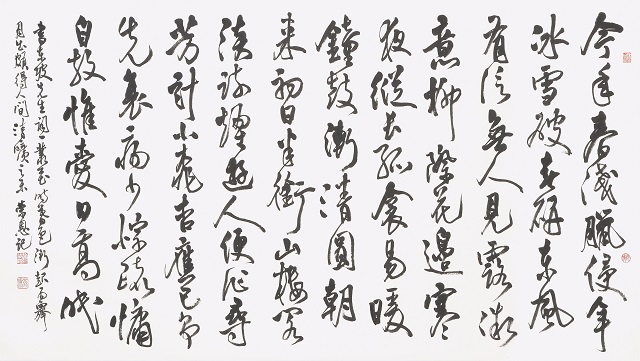 今年春淺臘侵年
冰雪破春妍東風
有信無人見露微
意柳際花邊寒
夜縱長孤衾易暖
鐘鼓漸清圓朝
來初日半銜山樓閣
淡疏煙遊人便作尋
芳計小桃杏應已爭
先衰病少悰疏慵
自放惟愛日高眠
書東坡先生詞叢花時春色漸
得人間清曠之